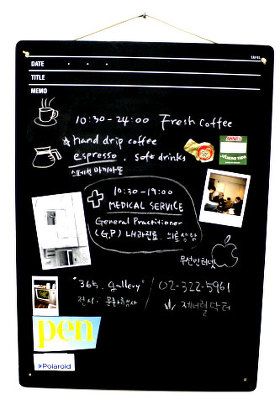 DATE . . .
TITLE
MEMO
10:30-24:00 Fresh Coffee
☆ hand drip coffee
espresso, soft drinks
10:30-19:00
MEDICAL SERVICE
General Practitioner
(G.P) 내과진료, 의료상담
무선인터넷
"365. Gallery"
02.322.5961
제너럴닥터
pen
Polaroid